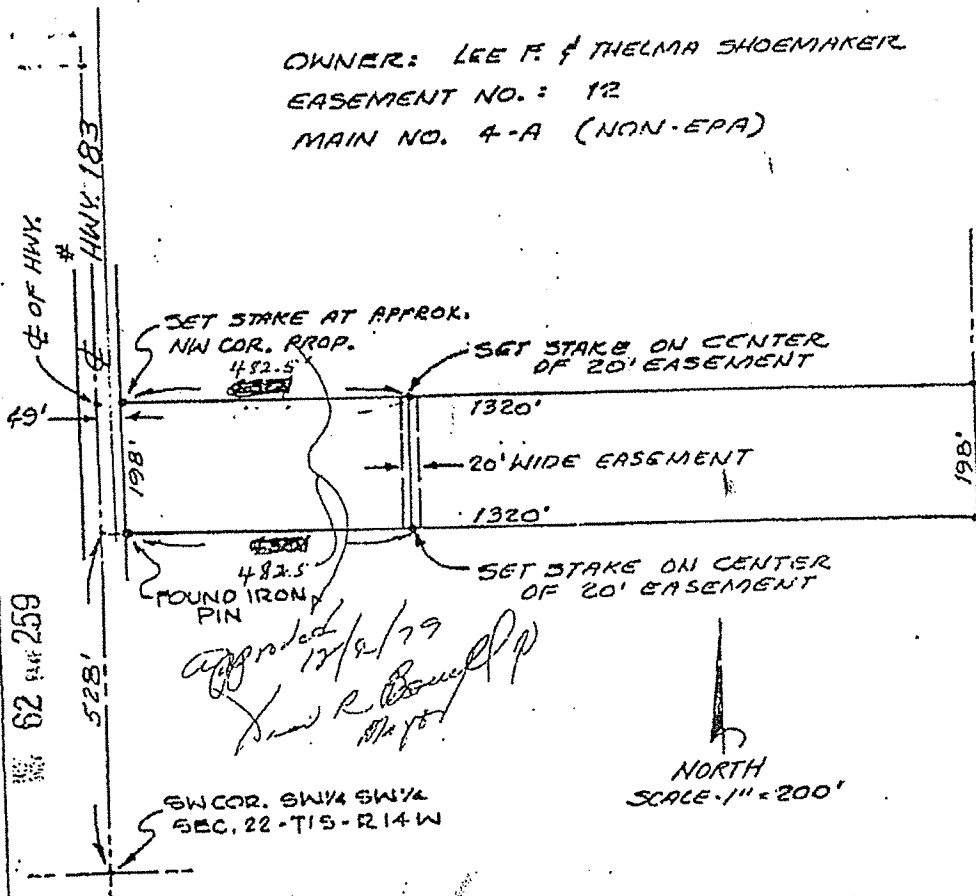 OWNER: LEE F. & THELMA SHOEMAKER
EASEMENT NO.: 12
MAIN NO. 4-A (NON-EPA)
HWY. 183
#
℄ OF HWY.
℄
SET STAKE AT APPROX.
NW COR. PROP.
482.5
SET STAKE ON CENTER
OF 20' EASEMENT
49'
1320'
198'
20' WIDE EASEMENT
198'
1320'
482.5
FOUND IRON
PIN
SET STAKE ON CENTER
OF 20' EASEMENT
approved
R.
Mayor
62 259
528'
NORTH
SCALE-1"=200'
SW COR. SW¼ SW¼
SEC. 22-T1S-R14W